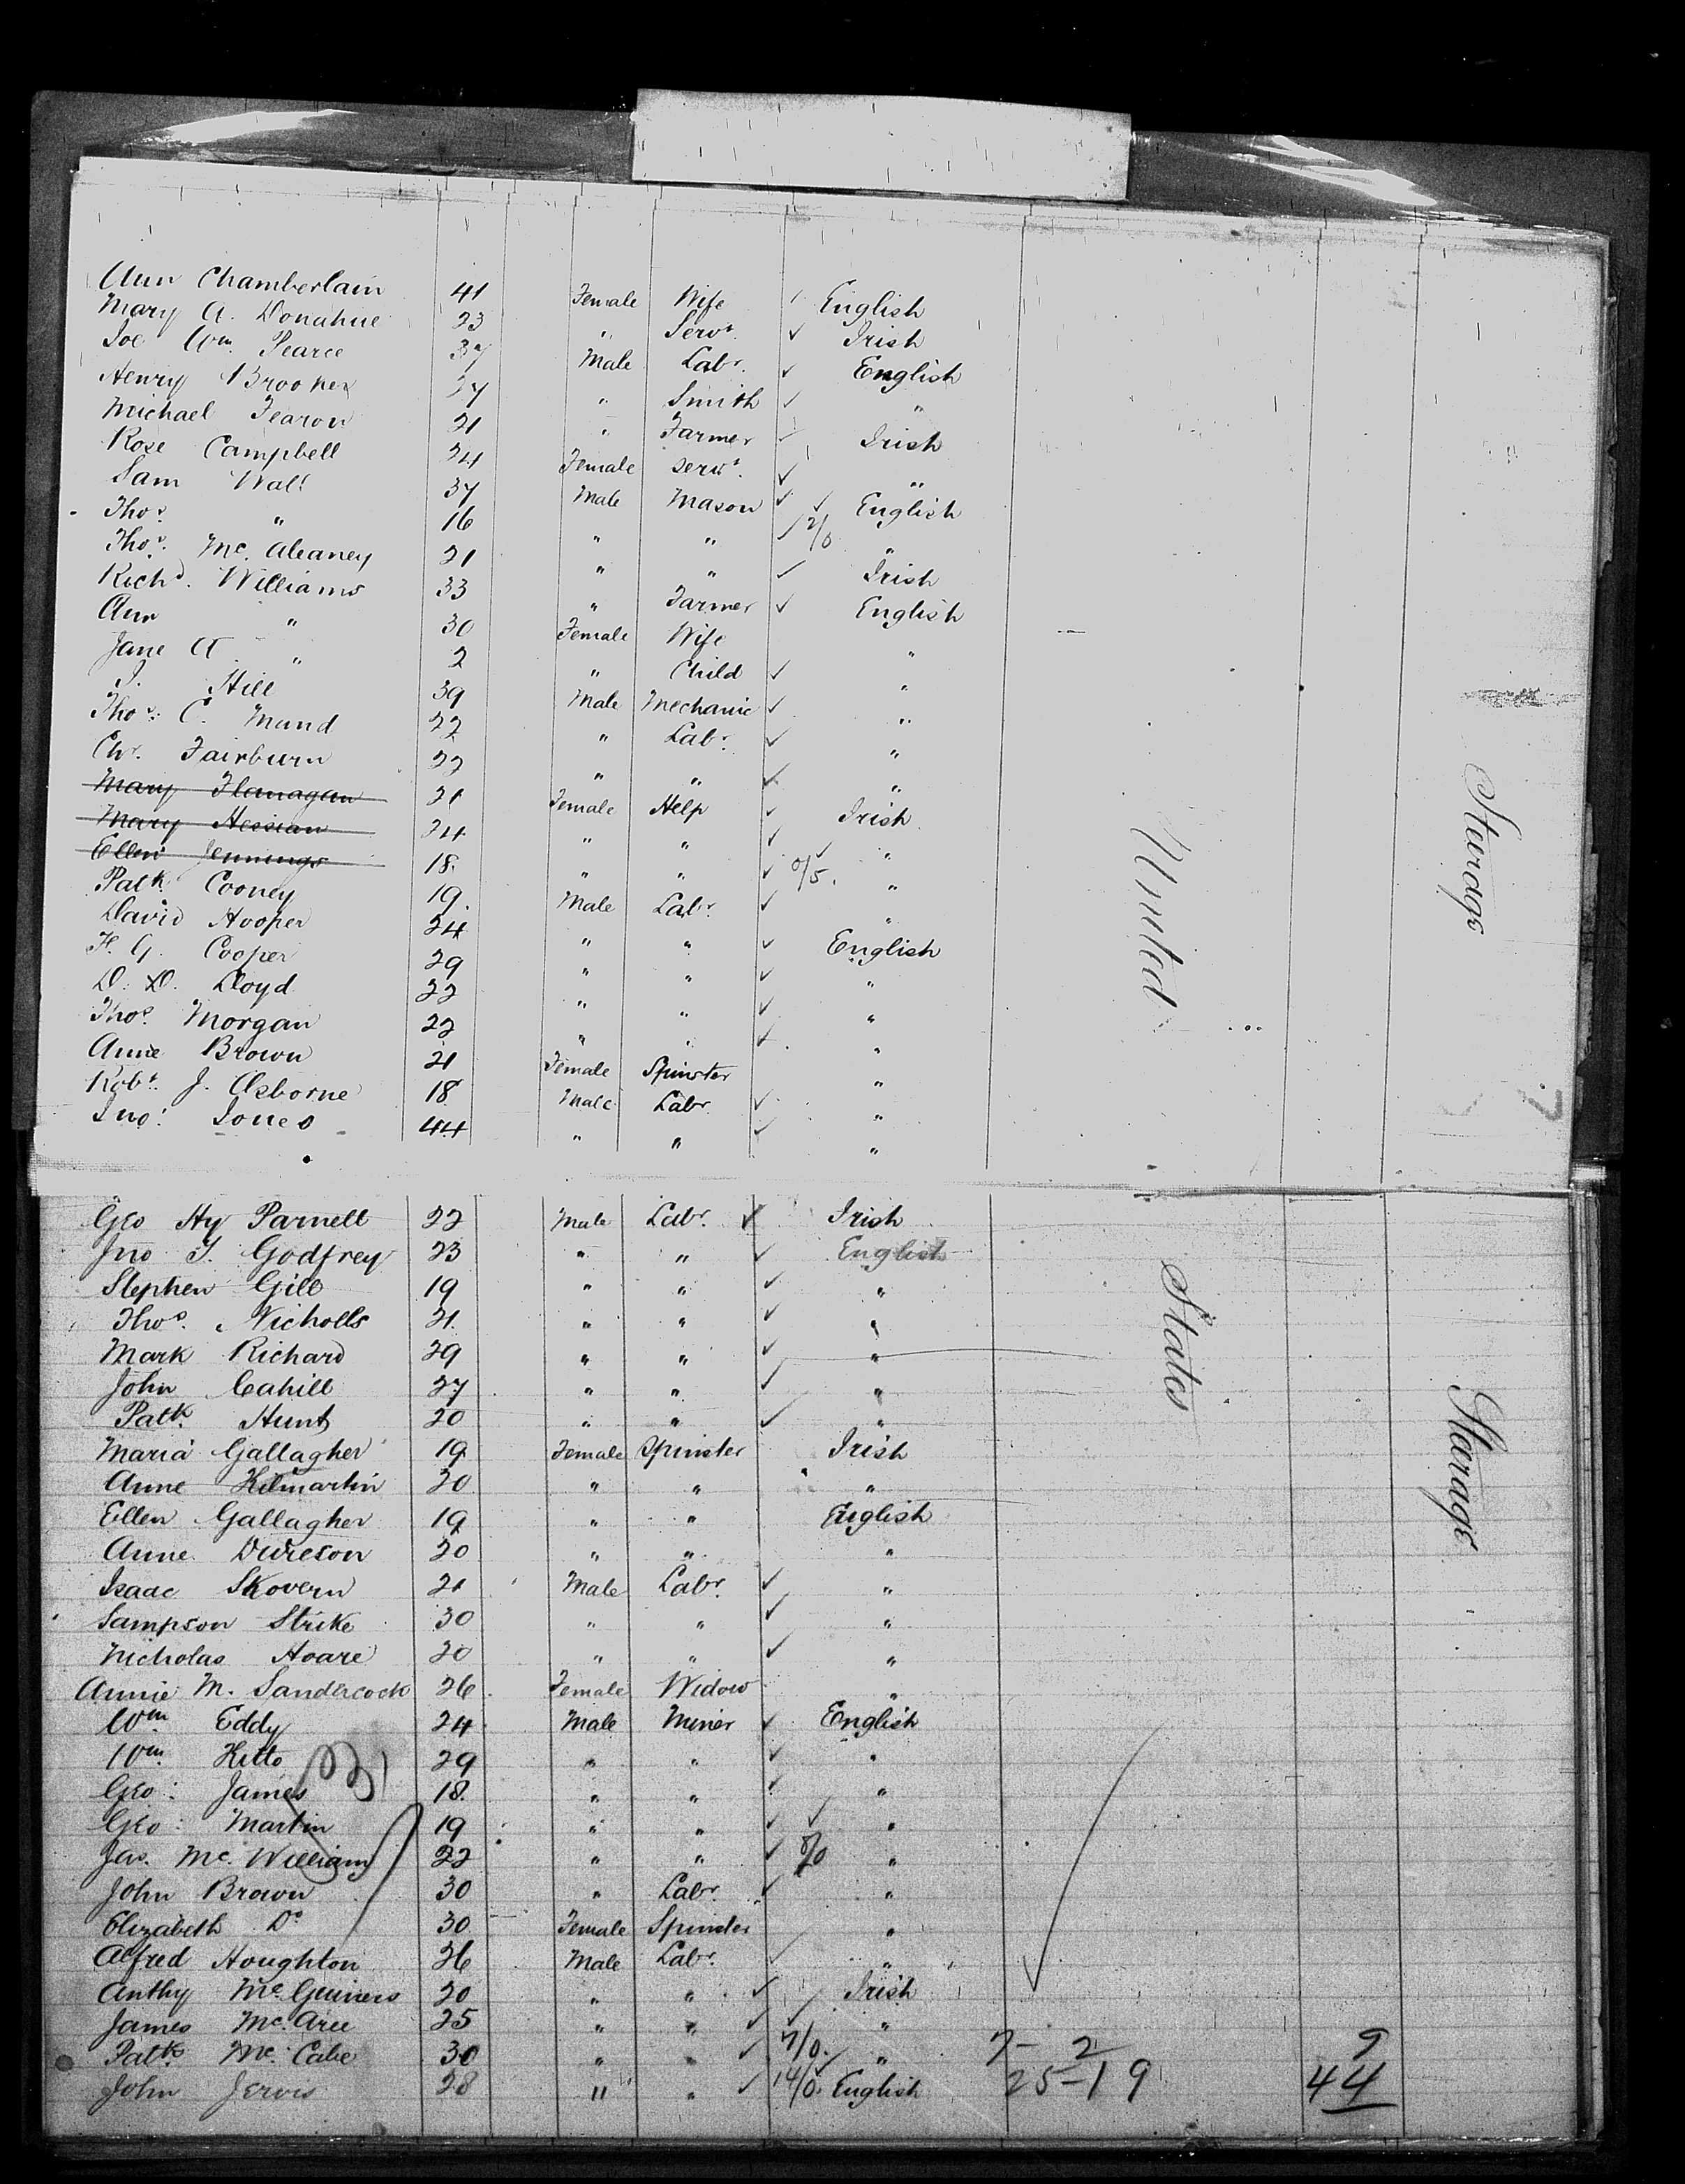 Ann Chamberlain 41 Female Wife English
Mary A. Donahue 23 " Servt. Irish
Joe Wm. Pearce 37 Male Labr. English
Henry 37 " Smith "
Michael Fearon 21 " Farmer Irish
Rose Campbell 24 Female Servt. "
Sam Wall 37 Male Mason English
Thos. " 16 " " 2/0 "
Thos. Mc. Aleaney 21 " " Irish
Richd. Williams 33 " Farmer English
Ann " 30 Female Wife "
Jane A " 2 " Child "
Hill 39 Male Mechanic "
Thos. C. Mund 22 " Labr. "
Chr. Fairburn 22 " " "
Mary Flanagan 21 Female Help Irish
Mary Hessian 24 " " "
Ellen Jennings 18 " " 0/5. "
Patk. Cooney 19. Male Labr. "
David Hooper 24 " " English
F. G. Cooper 29 " " "
D. D. Lloyd 22 " " "
Thos. Morgan 22 " " "
Anne Brown 21 Female Spinster "
Robt. J. Osborne 18 Male Labr. "
Jno: Jones 44 " " "
United
Steerage
Geo Hy Parnell 22 Male Labr. Irish
Jno T. Godfrey 23 " " English
Stephen Gill 19 " " "
Thos. Nicholls 21 " " "
Mark Richard 29 " " "
John Cahill 27 " " "
Patk. Hunt 20 " " "
Maria Gallagher 19 Female Spinster Irish
Anne Kilmartin 20 " " "
Ellen Gallagher 19 " " English
Anne 20 " " "
Isaac Skovern 21 Male Labr. "
Sampson Strike 30 " " "
Nicholas Hoare 20 " " "
Annie M. Sandercock 26 Female Widow "
Wm. Eddy 24 Male Miner English
Wm. Kitto 29 " " "
Geo: James 18. " " "
Geo: Martin 19 " " "
Jas. Mc. William 22 " " "
John Brown 30 " Labr. "
Elizabeth Do 30 Female Spinster "
Alfred Houghton 26 Male Labr. "
Anthy Mc Guiness 20 " " Irish
James Mc. Aree 25 " " "
Patk. Mc. Cabe 30 " " 7/0. " 7- 2 9
John Jervis 28 " " 14/0. English 25-19 44
States
Steerage